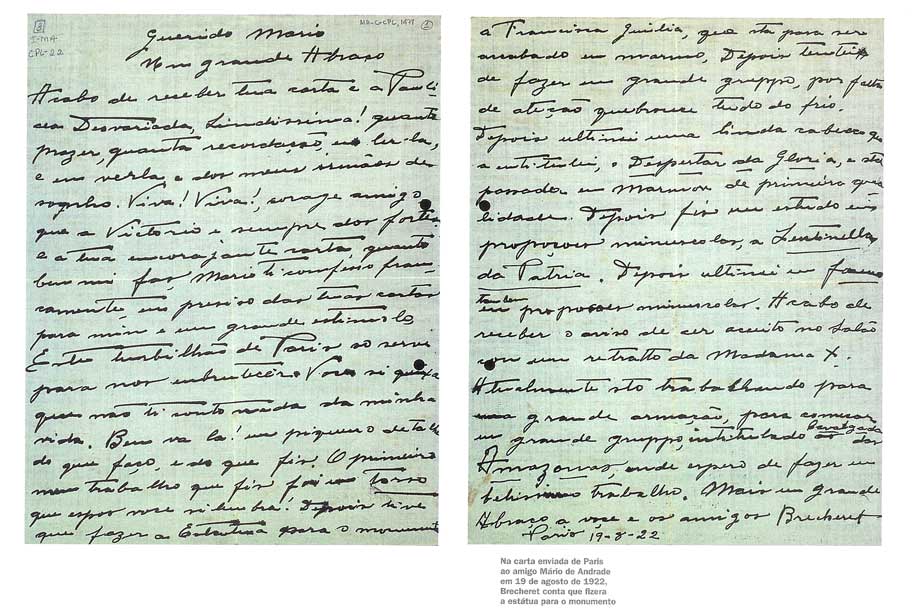 8
I-MA
CPL-22
MA-C-CPL, 1574
2
Querido Mario
Um grande Abraço
Acabo de receber tua carta e a Pauli-
cea Desvariada, Lindissima! quanto
prazer, quanta recordação, en ler-la,
e en verla e dos meus irmãos de
sognho. Viva! Viva!, corage amigo
que a Victoria e sempre dos fortes
e a tua encorajante carta, quanto
ben mi faz, Mario ti confesso fran-
camente, eu preciso das tuas cartas
para min e um grande estimolo,
Este turbilhão de Paris so serve
para nos embrutecer. Voce si queixa
que não ti conto nada da minha
vida. Ben va la! un piqueno detalh
do que faço, e do que fiz. O primeiro
meu trabalho que fiz foi un torso
que espor voce si lembra! Depois tive
que fazer a Estatua para o monumento
a Francisca Giulia, que sta para ser
acabado en marmo, Depois tentei
de fazer un grande gruppo, por falta
de atenção quebrouse tudo do frio.
Depois ultimei uma linda cabeça que
a intitulei, o Despertar da Gloria, e sta
passada en Marmor de primeira qua-
lidade. Depois fiz un estudo en
propoçoes minusculas, a Sentinella
da Patria. Depois ultimei un fauno
tambem
en propoçoes minusculas. Acabo de
receber o aviso de ser aceito no Salão
con um retratto da Madama X.
Atualmente sto trabalhando para
uma grande armação, para começar
un grande gruppo intitulado as das
Cavalgada
Amazonas, onde espero de fazer un
belissimo trabalho. Mais un grande
Abraço a voçe e os amigos Brecheret
Paris 19-8-22
Na carta enviada de Paris
ao amigo Mário de Andrade
em 19 de agosto de 1922,
Brecheret conta que fizera
a estátua para o monumento